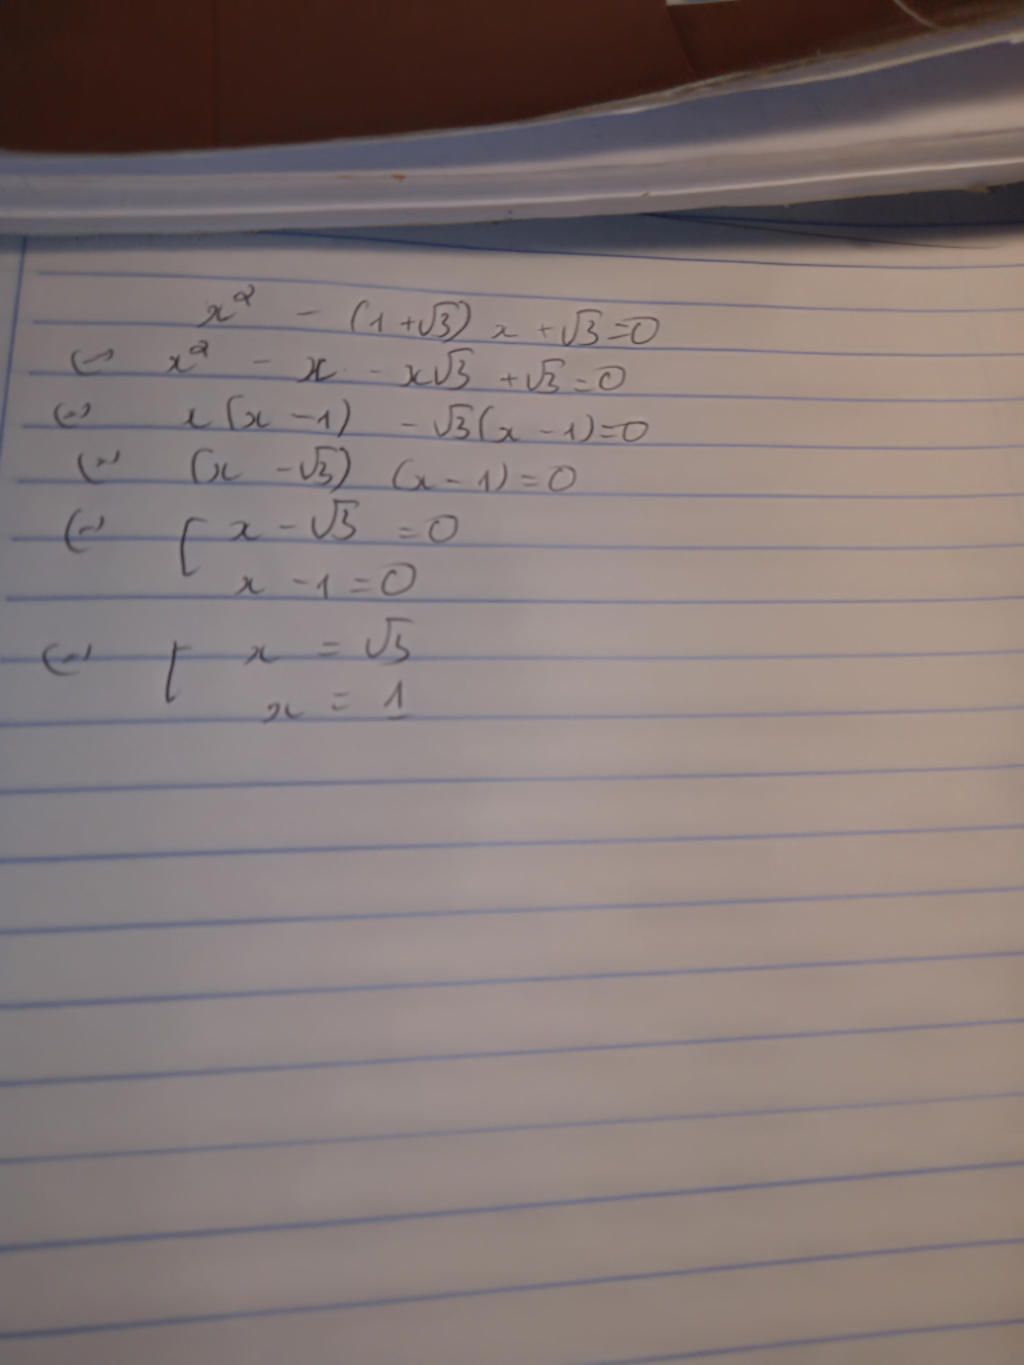 x² - (1+√3) x + √3 = 0
⇔ x² - x - x√3 + √3 = 0
⇔ x(x - 1) - √3(x - 1) = 0
⇔ (x - √3) (x - 1) = 0
⇔ [ x - √3 = 0
x - 1 = 0
⇔ [ x = √3
x = 1